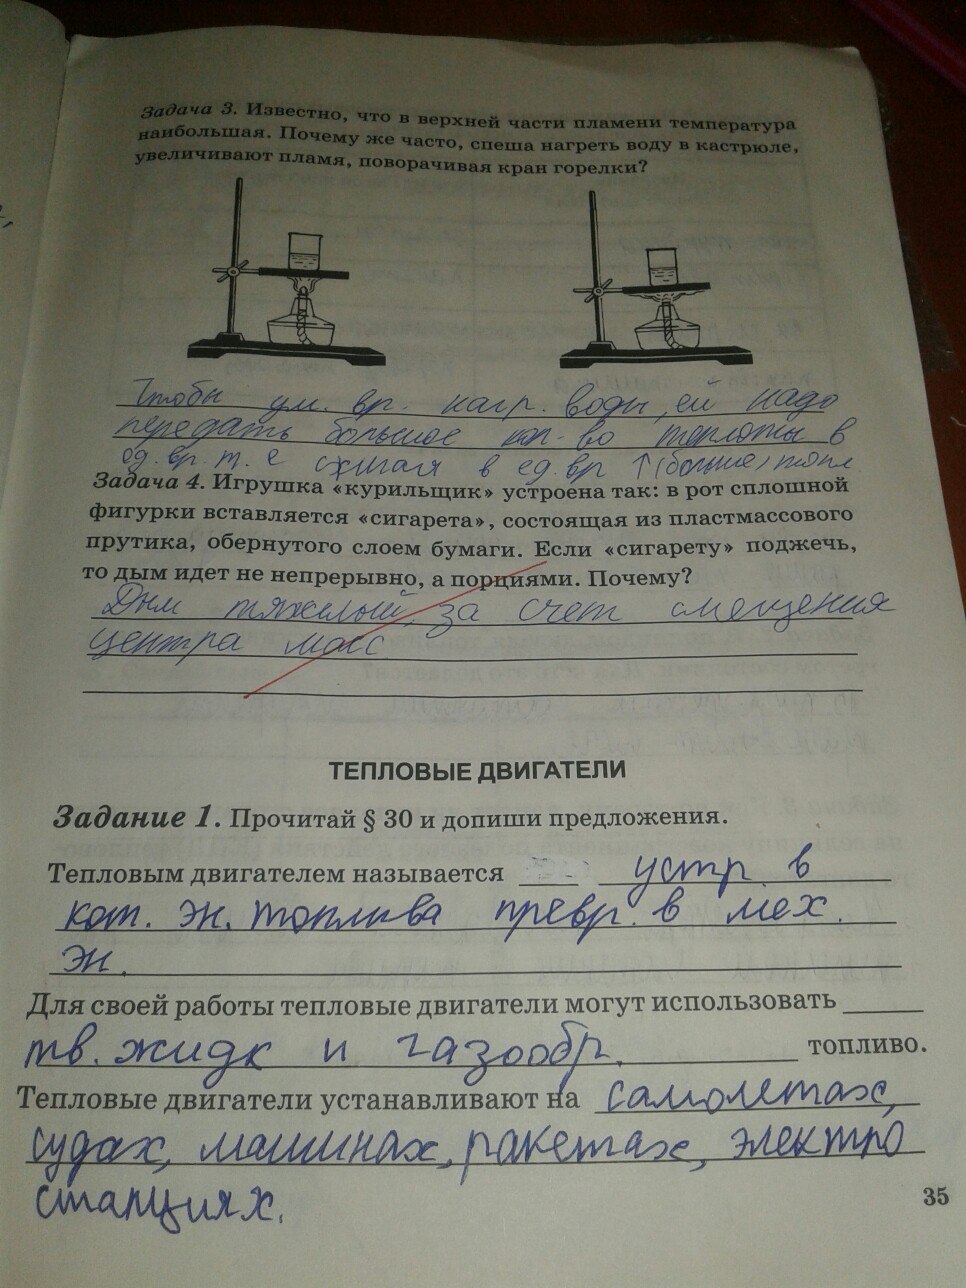 Задача 3. Известно, что в верхней части пламени температура
наибольшая. Почему же часто, спеша нагреть воду в кастрюле,
увеличивают пламя, поворачивая кран горелки?
Чтобы ум. вр. нагр. воды, ей надо
передать большое кол-во теплоты в
ед. вр. т. е сжигая в ед. вр ↑ (больше) топл
Задача 4. Игрушка «курильщик» устроена так: в рот сплошной
фигурки вставляется «сигарета», состоящая из пластмассового
прутика, обернутого слоем бумаги. Если «сигарету» поджечь,
то дым идет не непрерывно, а порциями. Почему?
Дым тяжелый, за счет смещения
центра масс
ТЕПЛОВЫЕ ДВИГАТЕЛИ
Задание 1. Прочитай § 30 и допиши предложения.
Тепловым двигателем называется устр. в
кот. эн. топлива превр. в мех.
эн.
Для своей работы тепловые двигатели могут использовать
тв. жидк и газообр. топливо.
Тепловые двигатели устанавливают на самолетах,
судах, машинах, ракетах, электро
станциях.
35